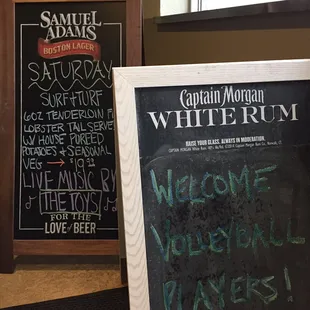 SAMUEL
ADAMS
BOSTON LAGER
SATURDAY
SURF+TURF
6OZ TENDERLOIN
LOBSTER TAIL SERVE
W/ HOUSE PUREED
POTATOES + SEASONAL
VEG →
LIVE MUSIC BY
THE TOYS!
FOR THE
LOVE of BEER
Captain Morgan
WHITE RUM
RAISE YOUR GLASS. ALWAYS IN MODERATION.
WELCOME
VOLLEYBALL
PLAYERS!